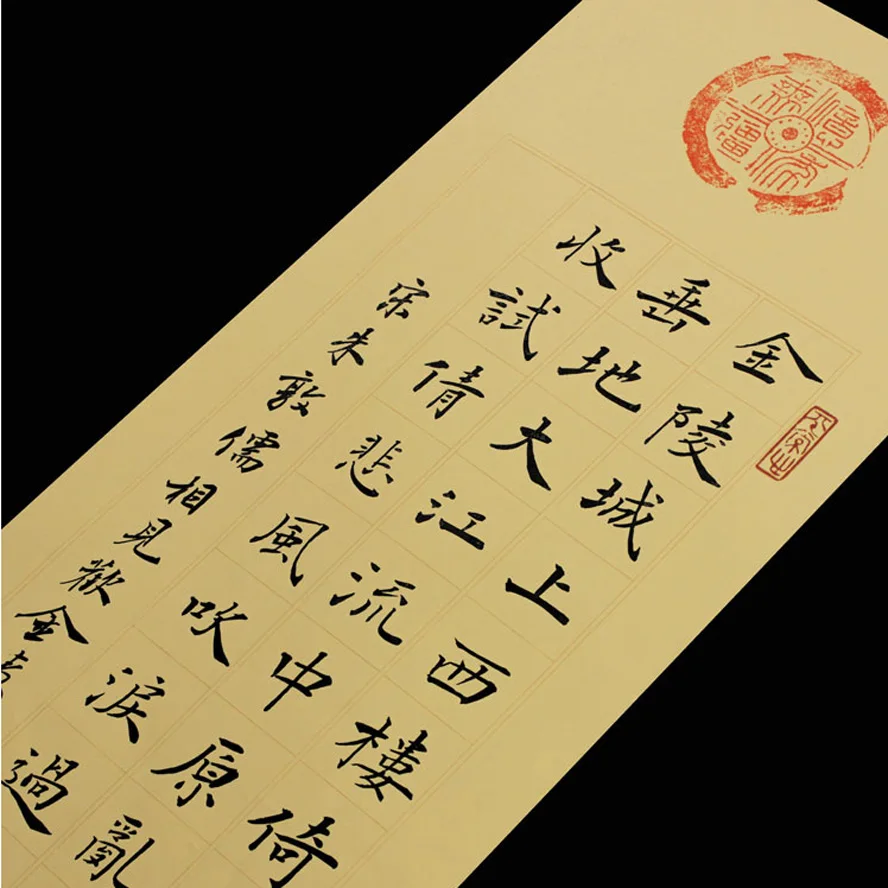 金陵城上西樓倚
垂地大江流中原亂
收試倩悲風吹淚過
宋朱敦儒相見歡金